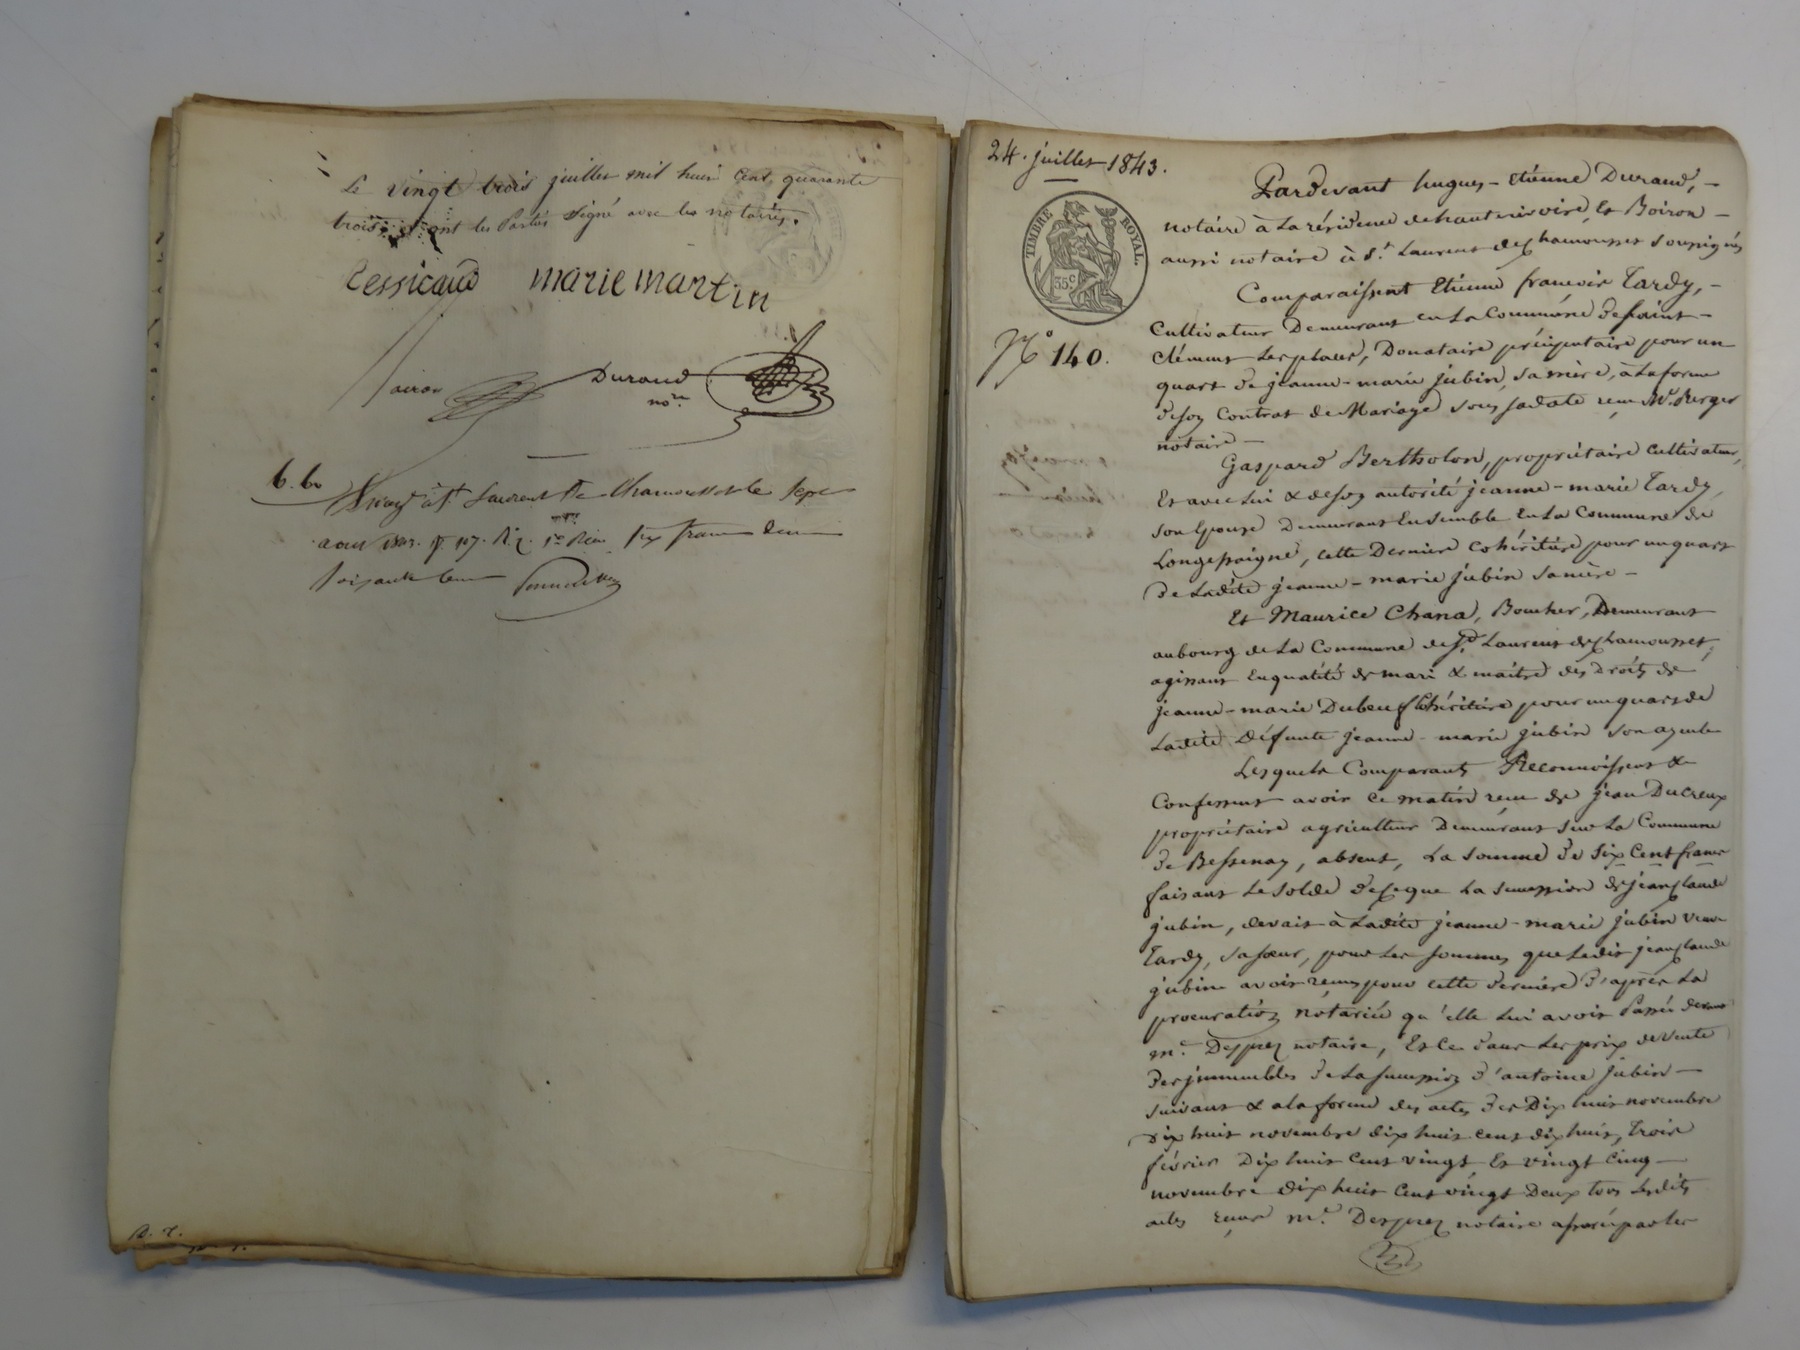 Le vingt trois juillet mil huit cent quarante
trois, et ont les Parties signé avec les notaires.
Cessicaud marie martin
Boiron Durand
nore
6.60
à St Laurent de Chamousset le sept
aout 1843. fo 117. R. 2. six francs
soixante
24. juillet 1843.
TIMBRE ROYAL.
35 c
No 140.
Pardevant hugues-etienne Durand, -
notaire à La résidence de hauterivoire, Et Boiron -
aussi notaire à St. Laurent de Chamousset soussignés
Comparaissent Etienne françois Tardy, -
Cultivateur Demeurant en La Commune de saint -
clément Les places, Donataire préciputaire pour un
quart de jeanne-marie jubin, sa mère, à La forme
de son Contrat de Mariage sous sa date reçu Me. Berger
notaire -
Gaspard Bertholon, propriétaire cultivateur,
Et avec Lui & de son autorité jeanne-marie Tardy,
son Epouse Demeurant Ensemble En La Commune de
Longessaigne, cette Dernière cohéritière pour un quart
de Ladite jeanne-marie jubin sa mère -
Et Maurice Chana, Boucher, Demeurant
au bourg de La Commune de St. Laurent de Chamousset,
agissant En qualité de mari & maitre des Droits de
jeanne-marie Dubeuf Cohéritière pour un quart de
Ladite Défunte jeanne-marie jubin son ayeule
Lesquels Comparants Reconnoissent &
Confessent avoir ce matin reçu de jean Ducreux
propriétaire agriculteur Demeurant sur La Commune
de Bessenay, absent, La somme de six Cent francs
faisant Le solde de ce que La succession de jean Claude
jubin, devait à Ladite jeanne-marie jubin veuve
Tardy, sa sœur, pour Les sommes que Ledit jean Claude
jubin avoit reçues pour cette dernière d'après La
procuration notariée qu'elle Lui avoit Passée devant
me. Desprez notaire, Et Ce dans Les prix de Vente
des jmmeubles de La succession d'antoine jubin -
suivant & a la forme des actes des Dix huit novembre
dix huit novembre dix huit cent dix huit, Trois
février Dix huit Cent vingt Et vingt Cinq -
novembre dix huit Cent vingt Deux tous Lesdits
actes reçus me. Desprez notaire par les